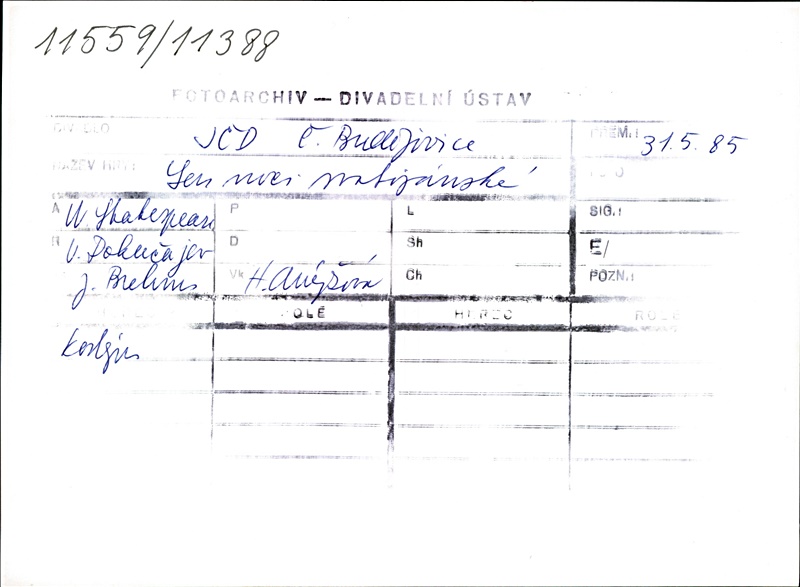 11559/11388
FOTOARCHIV — DIVADELNÍ ÚSTAV
DIVADLO JČD Č. Budějovice PREM.: 31.5.85
NÁZEV HRY: Sen noci svatojánské FOTO
A W Shakespeare P L SIG.:
R V. Dokučajev D Sh E/
J. Brehms Vk H. Anýžová Ch POZN.:
ROLE HEREC ROLE
kostým